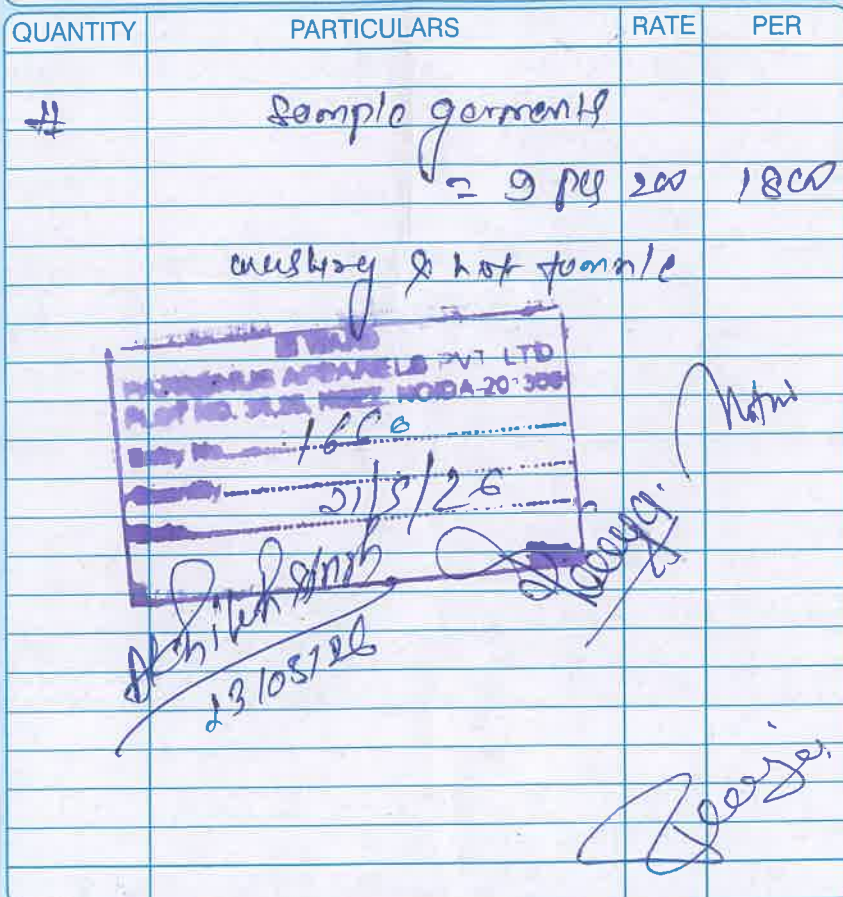 QUANTITY PARTICULARS RATE PER
# Sample garments
= 9 pcs 200 1800
crushing & hot
INWARD
APPARELS PVT LTD
PLOT NO. NOIDA-201305
Entry No. 166
Quantity 21/5/26
Akhilesh Singh
23/05/26
Neeraj